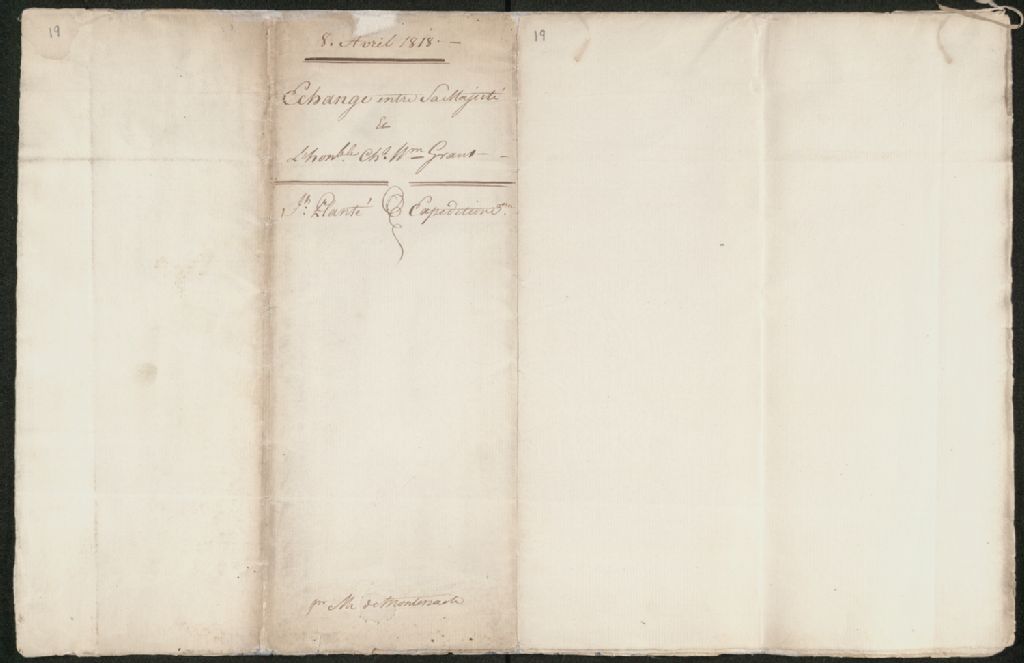 19
8. Avril 1818. —
Echange entre Sa Majesté
&
L'honble. Chs. Wm Grant —
Jh. Planté Expedition
pr Mr de Montenach
19